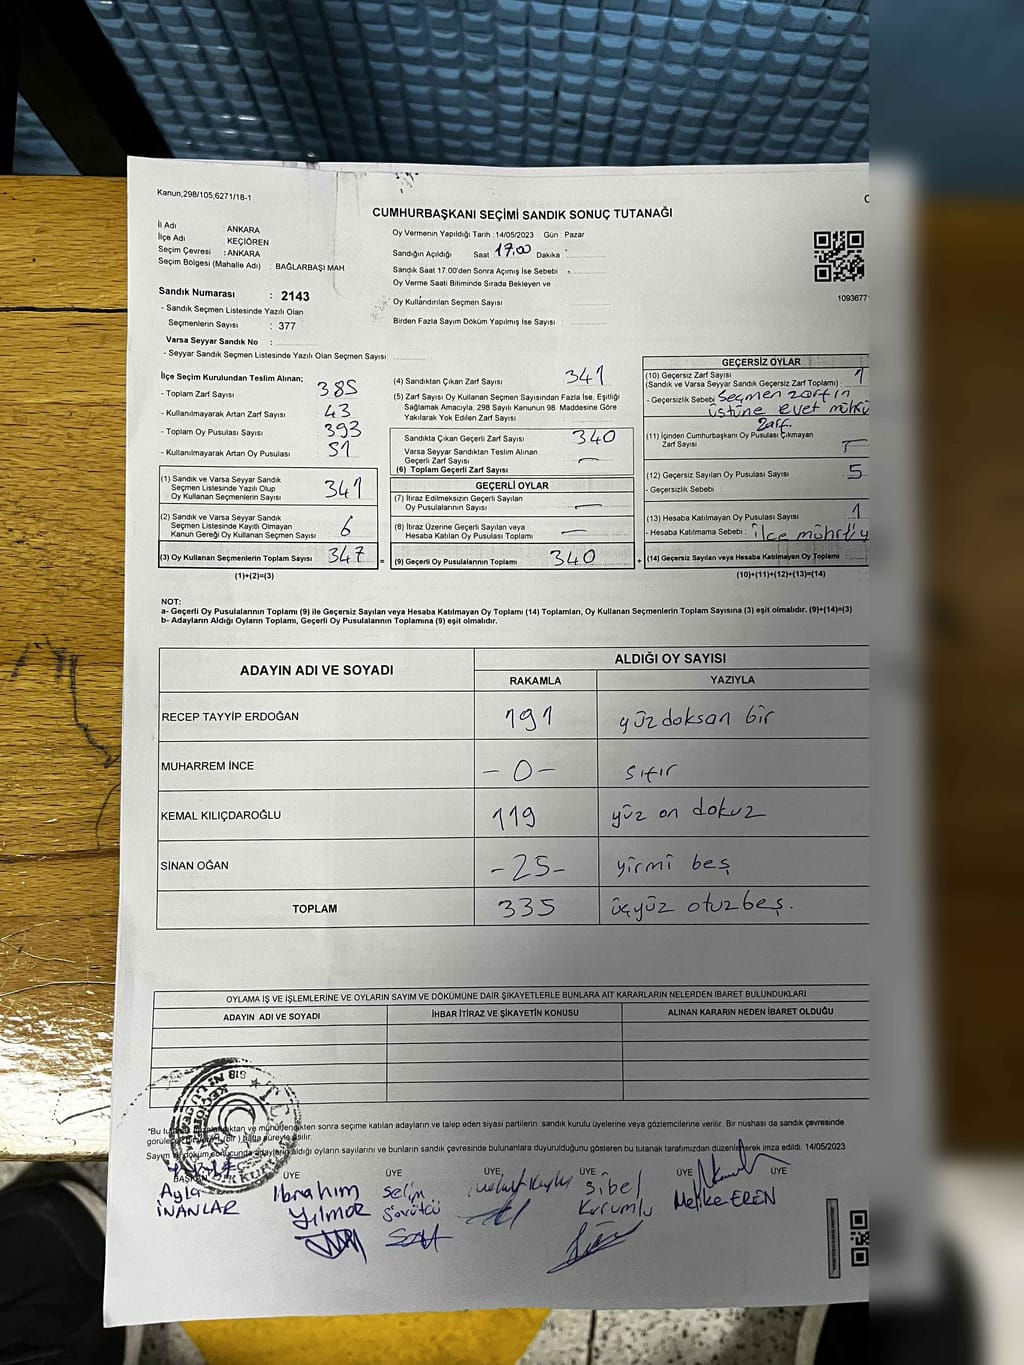 Kanun,298/105,6271/18-1
CUMHURBAŞKANI SEÇİMİ SANDIK SONUÇ TUTANAĞI
İl Adı : ANKARA
İlçe Adı : KEÇİÖREN
Seçim Çevresi : ANKARA
Seçim Bölgesi (Mahalle Adı) : BAĞLARBAŞI MAH
Sandık Numarası : 2143
- Sandık Seçmen Listesinde Yazılı Olan
Seçmenlerin Sayısı : 377
Varsa Seyyar Sandık No :
- Seyyar Sandık Seçmen Listesinde Yazılı Olan Seçmen Sayısı:
Oy Vermenin Yapıldığı Tarih :14/05/2023 Gün : Pazar
Sandığın Açıldığı Saat 17.00 Dakika :
Sandık Saat 17.00'den Sonra Açımış İse Sebebi :
Oy Verme Saati Bitiminde Sırada Bekleyen ve
Oy Kullandırılan Seçmen Sayısı :
Birden Fazla Sayım Döküm Yapılmış İse Sayısı :
1093677
İlçe Seçim Kurulundan Teslim Alınan;
- Toplam Zarf Sayısı 385
- Kullanılmayarak Artan Zarf Sayısı : 43
- Toplam Oy Pusulası Sayısı : 393
- Kullanılmayarak Artan Oy Pusulası : 51
(1) Sandık ve Varsa Seyyar Sandık
Seçmen Listesinde Yazılı Olup
Oy Kullanan Seçmenlerin Sayısı : 341
(2) Sandık ve Varsa Seyyar Sandık
Seçmen Listesinde Kayıtlı Olmayan
Kanun Gereği Oy Kullanan Seçmen Sayısı : 6
(3) Oy Kullanan Seçmenlerin Toplam Sayısı : 347
(1)+(2)=(3)
(4) Sandıktan Çıkan Zarf Sayısı : 341
(5) Zarf Sayısı Oy Kullanan Seçmen Sayısından Fazla İse, Eşitliği
Sağlamak Amacıyla, 298 Sayılı Kanunun 98. Maddesine Göre
Yakılarak Yok Edilen Zarf Sayısı :
Sandıkta Çıkan Geçerli Zarf Sayısı : 340
Varsa Seyyar Sandıktan Teslim Alınan
Geçerli Zarf Sayısı : —
(6) Toplam Geçerli Zarf Sayısı
GEÇERLİ OYLAR
(7) İtiraz Edilmeksizin Geçerli Sayılan
Oy Pusulalarının Sayısı : —
(8) İtiraz Üzerine Geçerli Sayılan veya
Hesaba Katılan Oy Pusulası Toplamı : —
= (9) Geçerli Oy Pusulalarının Toplamı : 340
GEÇERSİZ OYLAR
(10) Geçersiz Zarf Sayısı 1
(Sandık ve Varsa Seyyar Sandık Geçersiz Zarf Toplamı) :
- Geçersizlik Sebebi : Seçmen zarfın
üstüne evet mührü
Zarf.
(11) İçinden Cumhurbaşkanı Oy Pusulası Çıkmayan
Zarf Sayısı
(12) Geçersiz Sayılan Oy Pusulası Sayısı : 5
- Geçersizlik Sebebi :
(13) Hesaba Katılmayan Oy Pusulası Sayısı : 1
- Hesaba Katılmama Sebebi : ilçe
+ (14) Geçersiz Sayılan veya Hesaba Katılmayan Oy Toplamı :
(10)+(11)+(12)+(13)=(14)
NOT:
a- Geçerli Oy Pusulalarının Toplamı (9) ile Geçersiz Sayılan veya Hesaba Katılmayan Oy Toplamı (14) Toplamları, Oy Kullanan Seçmenlerin Toplam Sayısına (3) eşit olmalıdır. (9)+(14)=(3)
b- Adayların Aldığı Oyların Toplamı, Geçerli Oy Pusulalarının Toplamına (9) eşit olmalıdır.
ADAYIN ADI VE SOYADI ALDIĞI OY SAYISI
RAKAMLA YAZIYLA
RECEP TAYYİP ERDOĞAN 191 yüz doksan bir
MUHARREM İNCE -0- sıfır
KEMAL KILIÇDAROĞLU 119 yüz on dokuz
SİNAN OĞAN -25- yirmi beş
TOPLAM 335 üçyüz otuzbeş.
OYLAMA İŞ VE İŞLEMLERİNE VE OYLARIN SAYIM VE DÖKÜMÜNE DAİR ŞİKAYETLERLE BUNLARA AİT KARARLARIN NELERDEN İBARET BULUNDUKLARI
ADAYIN ADI VE SOYADI İHBAR İTİRAZ VE ŞİKAYETİN KONUSU ALINAN KARARIN NEDEN İBARET OLDUĞU
*Bu sonra seçime katılan adayların ve talep eden siyasi partilerin sandık kurulu üyelerine veya gözlemcilerine verilir. Bir nüshası da sandık çevresinde
hafta süreyle asılır.
Sayım ve döküm sonucunda adayların aldığı oyların sayılarını ve bunların sandık çevresinde bulunanlara duyurulduğunu gösteren bu tutanak tarafımızdan düzenlenerek imza edildi. 14/05/2023
BAŞKAN ÜYE ÜYE ÜYE ÜYE ÜYE ÜYE
Ayla İbrahim Selim Sibel Melike EREN
İNANLAR Yılmaz Kurumlu